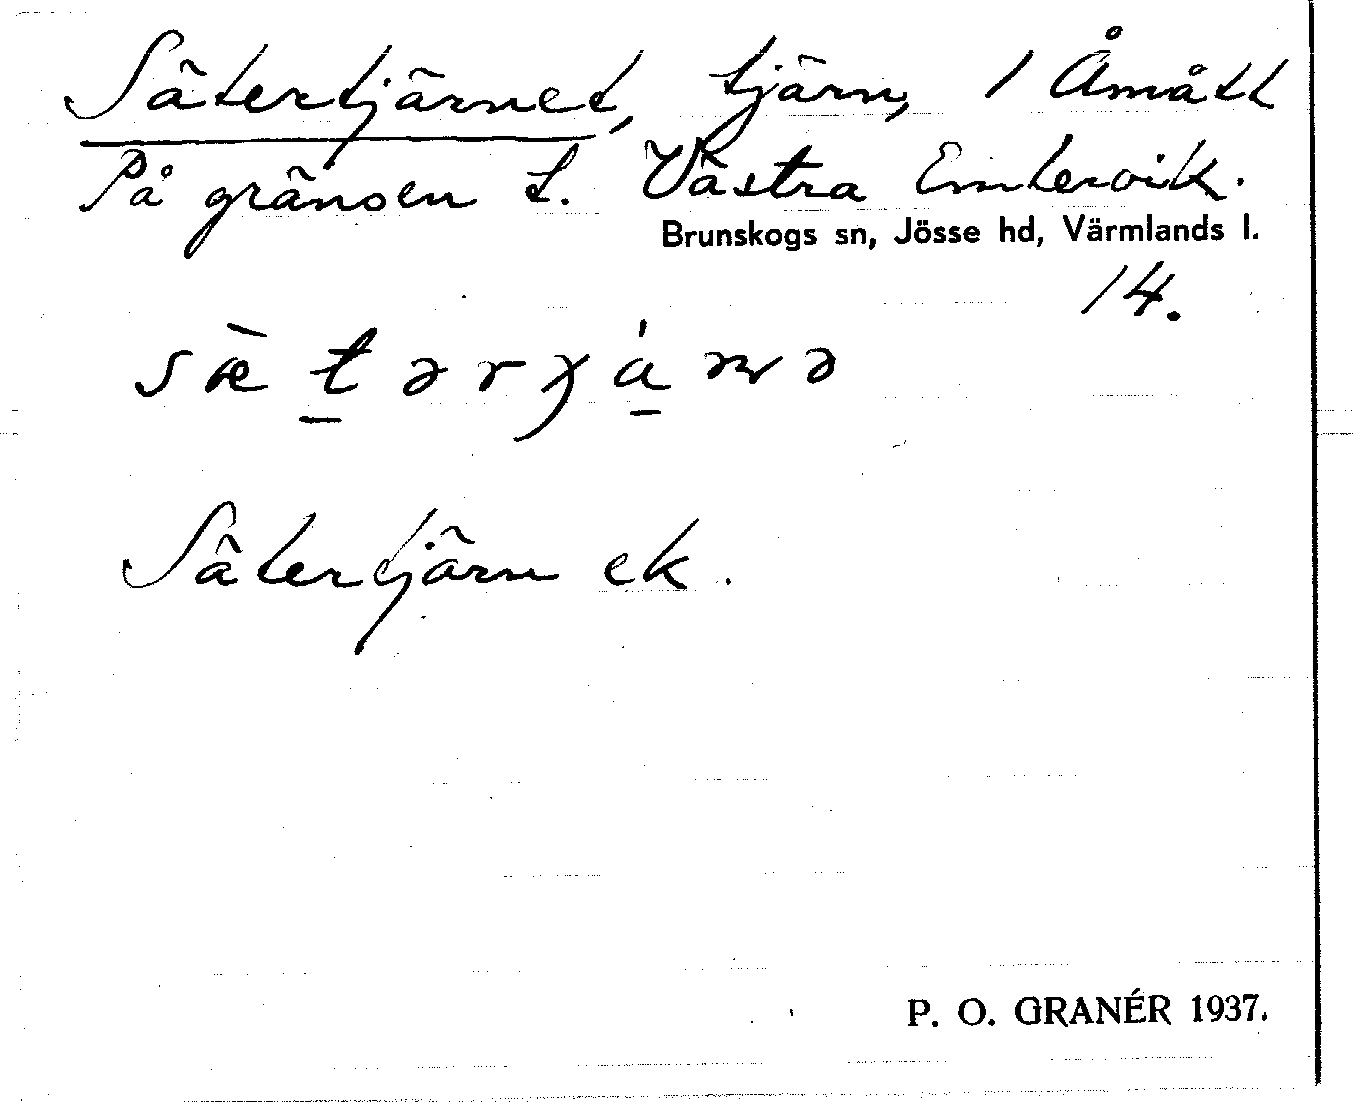 Sätertjärnet, tjärn, 1 Åmått
På gränsen t. Västra Emtervik.
Brunskogs sn, Jösse hd, Värmlands l.
14.
Sätertjärn ek.
P. O. GRANÉR 1937.